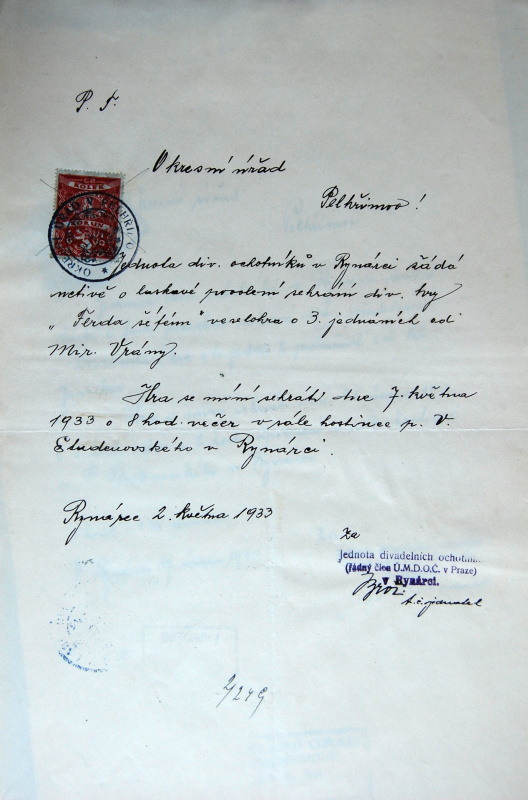 P. T.
Okresní úřad
Pelhřimov!
KOLEK
Jednota div. ochotníků v Rynárci žádá
uctivě o laskavé povolení sehrání div. hry
„Ferda šéfem" veselohra o 3. jednáních od
Mir. Vrány.
Hra se míní sehráti dne 7. května
1933 o 8 hod. večer v sále hostince p. V.
Studenovského v Rynárci.
Rynárec 2. května 1933
Za
Jednota divadelních ochotn
(řádný člen Ú.M.D.O.Č. v Praze)
v Rynárci.
t. č. jednatel